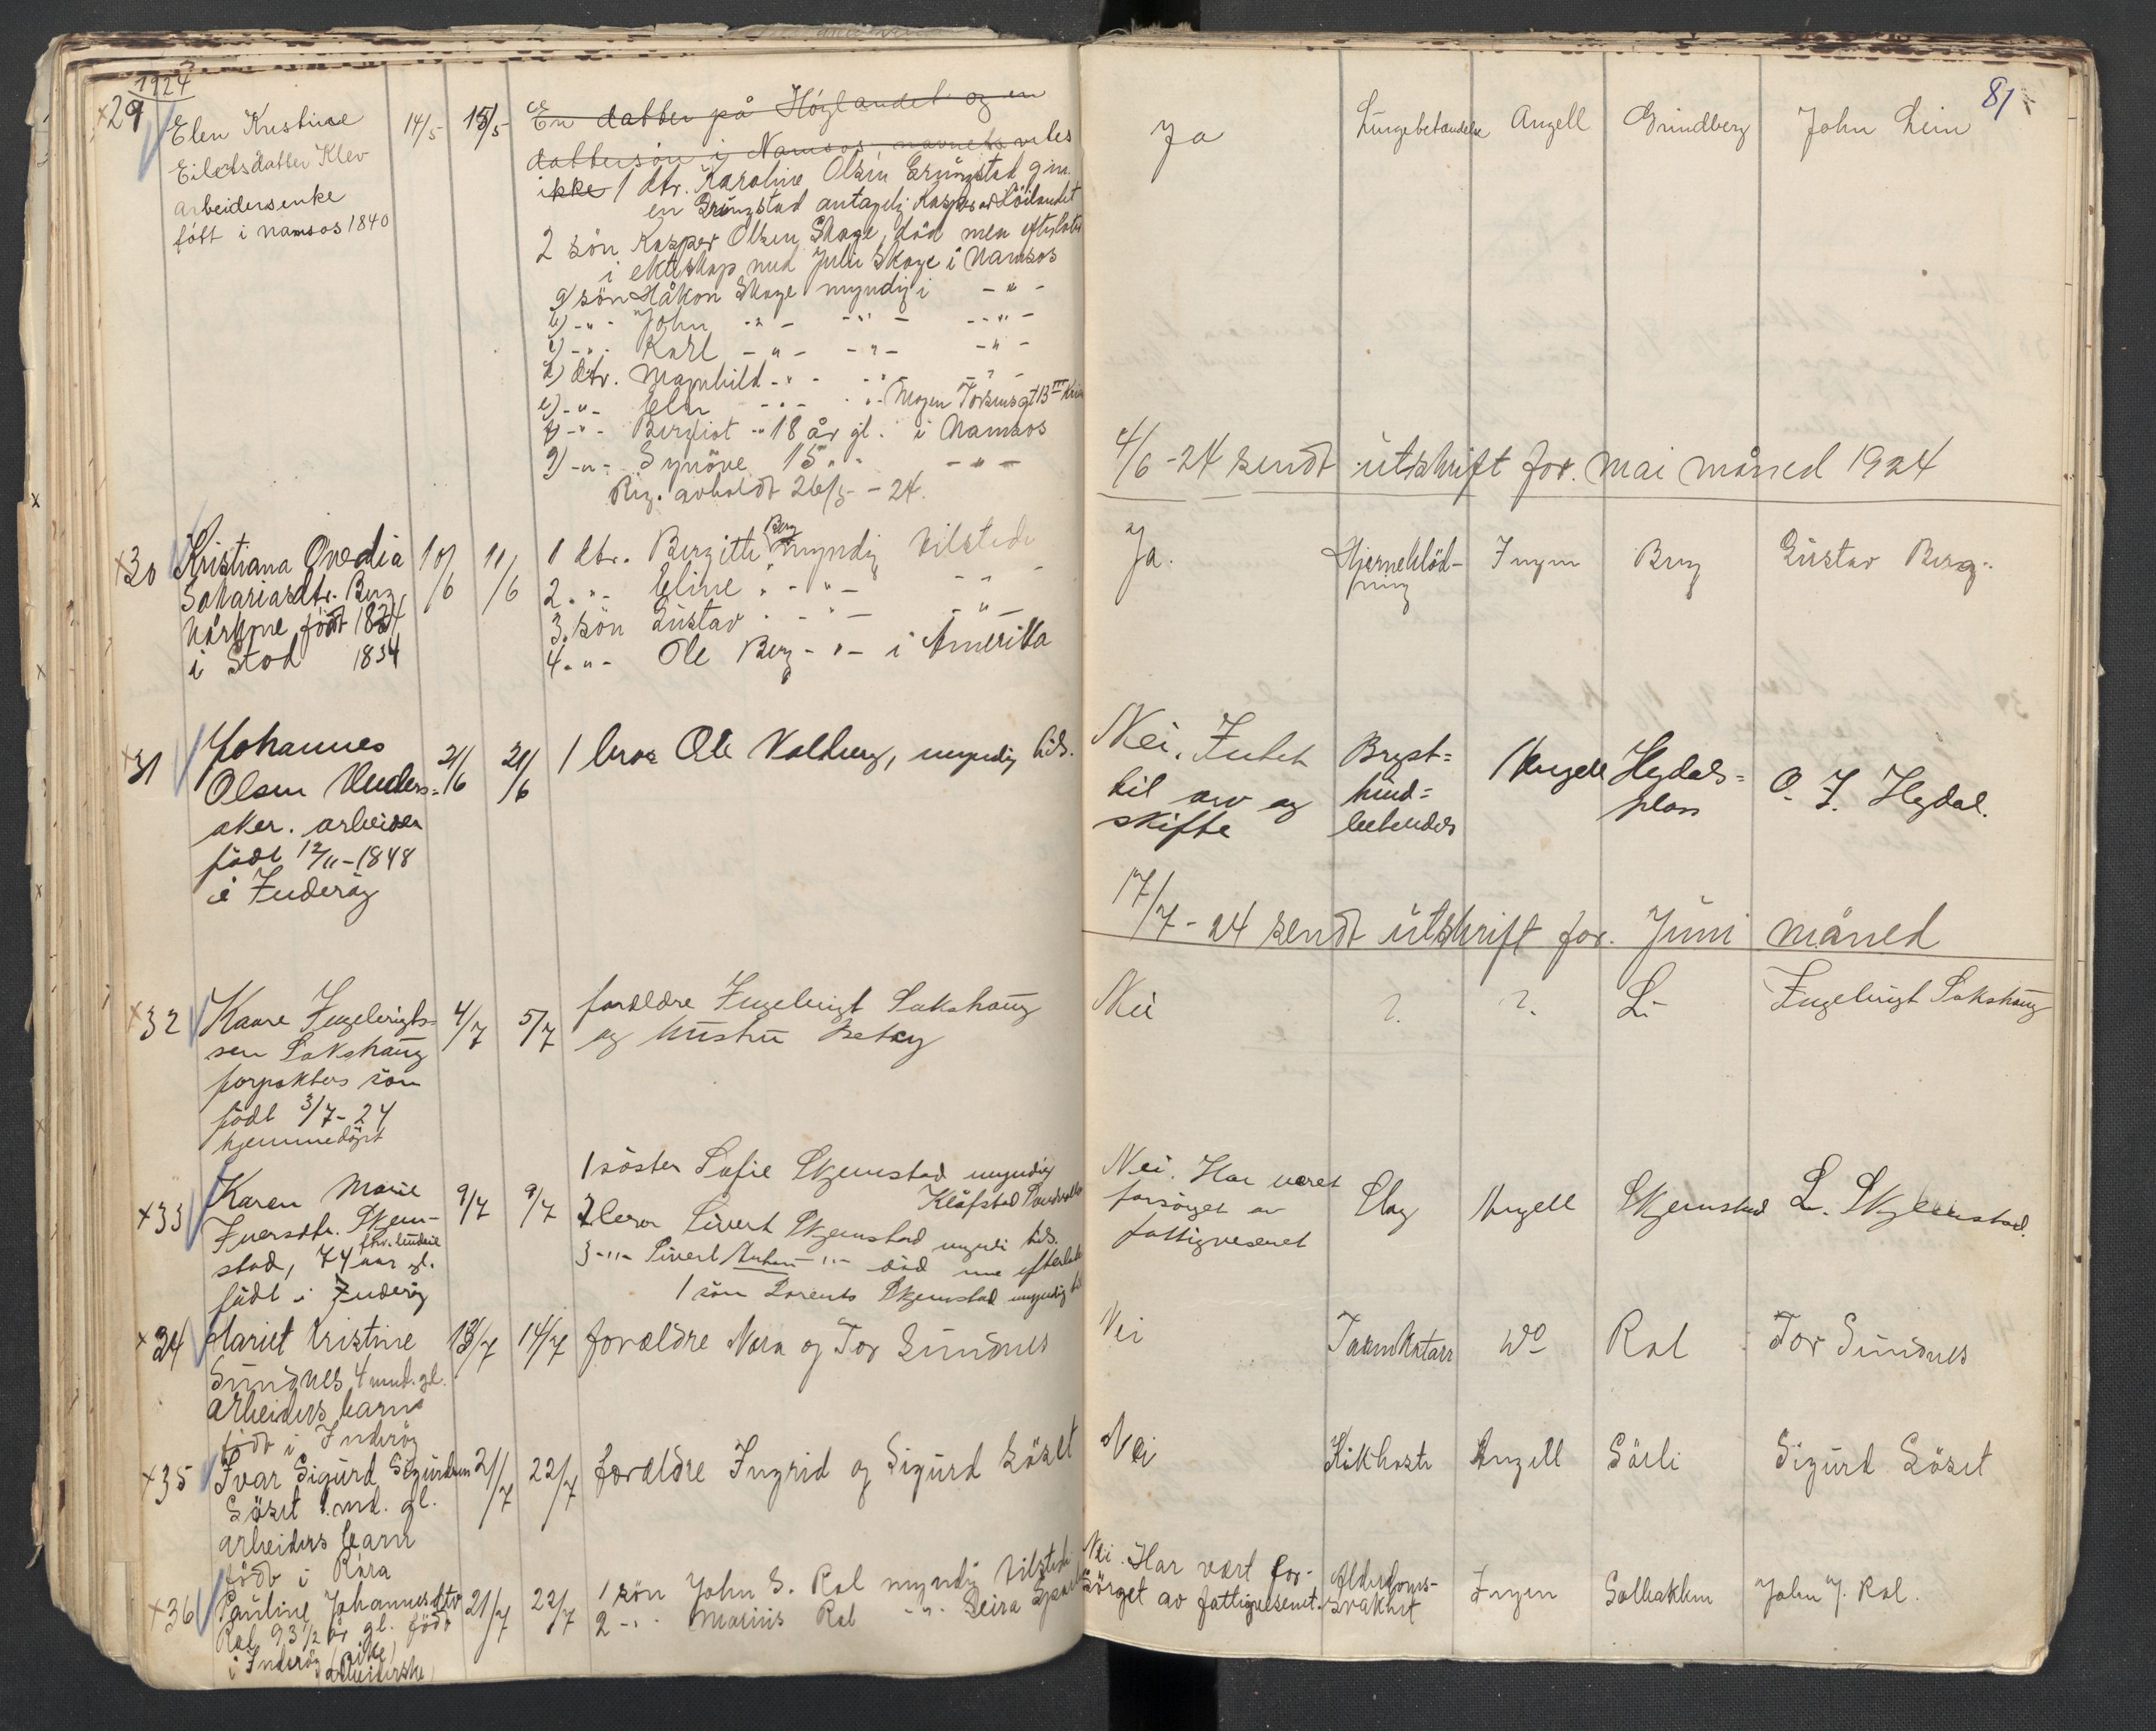 1924
81
+29
Elen Kristine
Eilertsdatter Klev
arbeidersenke
født i Namsos 1840
14/5
15/5
En datter på Høylandet og en
dattersøn i Namsos navnets vites
ikke 1 dtr. Karoline Olsen Grungstad g.m.
en Grungstad antagelig Kasper Höilandet
2 sön Kasper Olsen Skage, död men efterlat
i ektskap med Julie Skage i Namsos
a) sön Håkon Skage myndig i - " -
b) - " - John - " - - " - - " -
c) - " - Karl - " - - " - - " -
d) dtr. Magnhild - " - - " - - " -
e) - " - Elen - " - - " - Mogen Torsensgt 13
f) - " - Bergliot - " 18 år gl. i Namsos
g) - " - Synöve 15 " " - " -
Reg. avholdt 26/5 - 24.
Ja
Lungebetændelse
Angell
Grundberg
John Lein
4/6 - 24 sendt utskrift for mai måned 1924
+30
Kristiana Ovedia
Sakariasdtr. Berg
kårkone født 1834
i Stod 1834
10/6
11/6
1 dtr. Bergitte Berg myndig tilstede
2. " - Eline " - " - - " -
3. sön Gustav " - " - - " -
4. " - Ole Berg - " - i Amerika
Ja.
Hjerneblöd-
ning
Ingen
Berg
Gustav Berg.
+31
Johannes
Olsen Unders-
aker. arbeider
født 12/11-1848
i Inderöy
21/6
21/6
1 bror Ole Valberg, myndig tils.
Nei. Intet
til arv og
skifte
Bryst-
hind-
betendels
Angell
Hegdals-
plass
O. J. Hegdal.
17/7 - 24 sendt utskrift for Juni måned
+32
Kaare Ingebrigts-
sen Sakshaug
forpakters sön
født 3/7-24
hjemmedöpt
4/7
5/7
foreldre Ingebrigt Sakshaug
og hustru Betsy
Nei
?
?
Li
Ingebrigt Sakshaug
+33
Karen Marie
Iversdtr. Skjem-
stad, 74 aar gl.
født i Inderöy
9/7
9/7
1 söster Sofie Skjemstad myndig
Kläfstad
2 bror Sivert Skjemstad myndi tils.
3 - " - Sivert - " - död men efterlat
1 sön Lorents Skjemstad myndig
Nei. Har været
forsörget av
fattigvesenet
Slag
Angell
Skjemstad
L. Skjemstad.
+34
Hariet Kristine
Sundnes 4 mnd. gl.
arbeiders barn
född i Inderöy
13/7
14/7
foreldre Nora og Tor Sundnes
Nei
Tarmkatarr
do
Rol
Tor Sundnes
+35
Ivar Sigurd Sigurdsen
Söset 1. md. gl.
arbeiders barn
född i Röra
21/7
22/7
foreldre Ingrid og Sigurd Söset
Nei
Kikhoste
Angell
Särli
Sigurd Söset
+36
Pauline Johannesdtr
Rol 93 1/2 år gl. född
i Inderöy (pike)
arbeiderske
21/7
22/7
1 sön John S. Rol myndig tilstede
2 - " - Marius Rol - " - Leira
Nei. Har vært for-
sörget av fattigvesenet.
Alderdoms-
svakhet
Ingen
Solbakken
John J. Rol.